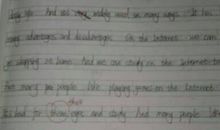 daily life. And it's widely used in many ways. It has
many advantages and disadvantages. On the Internet we can
go shopping at home. And we can study on the Internet
many people like playing games on the Internet.
It's bad for their eyes and study. And many people